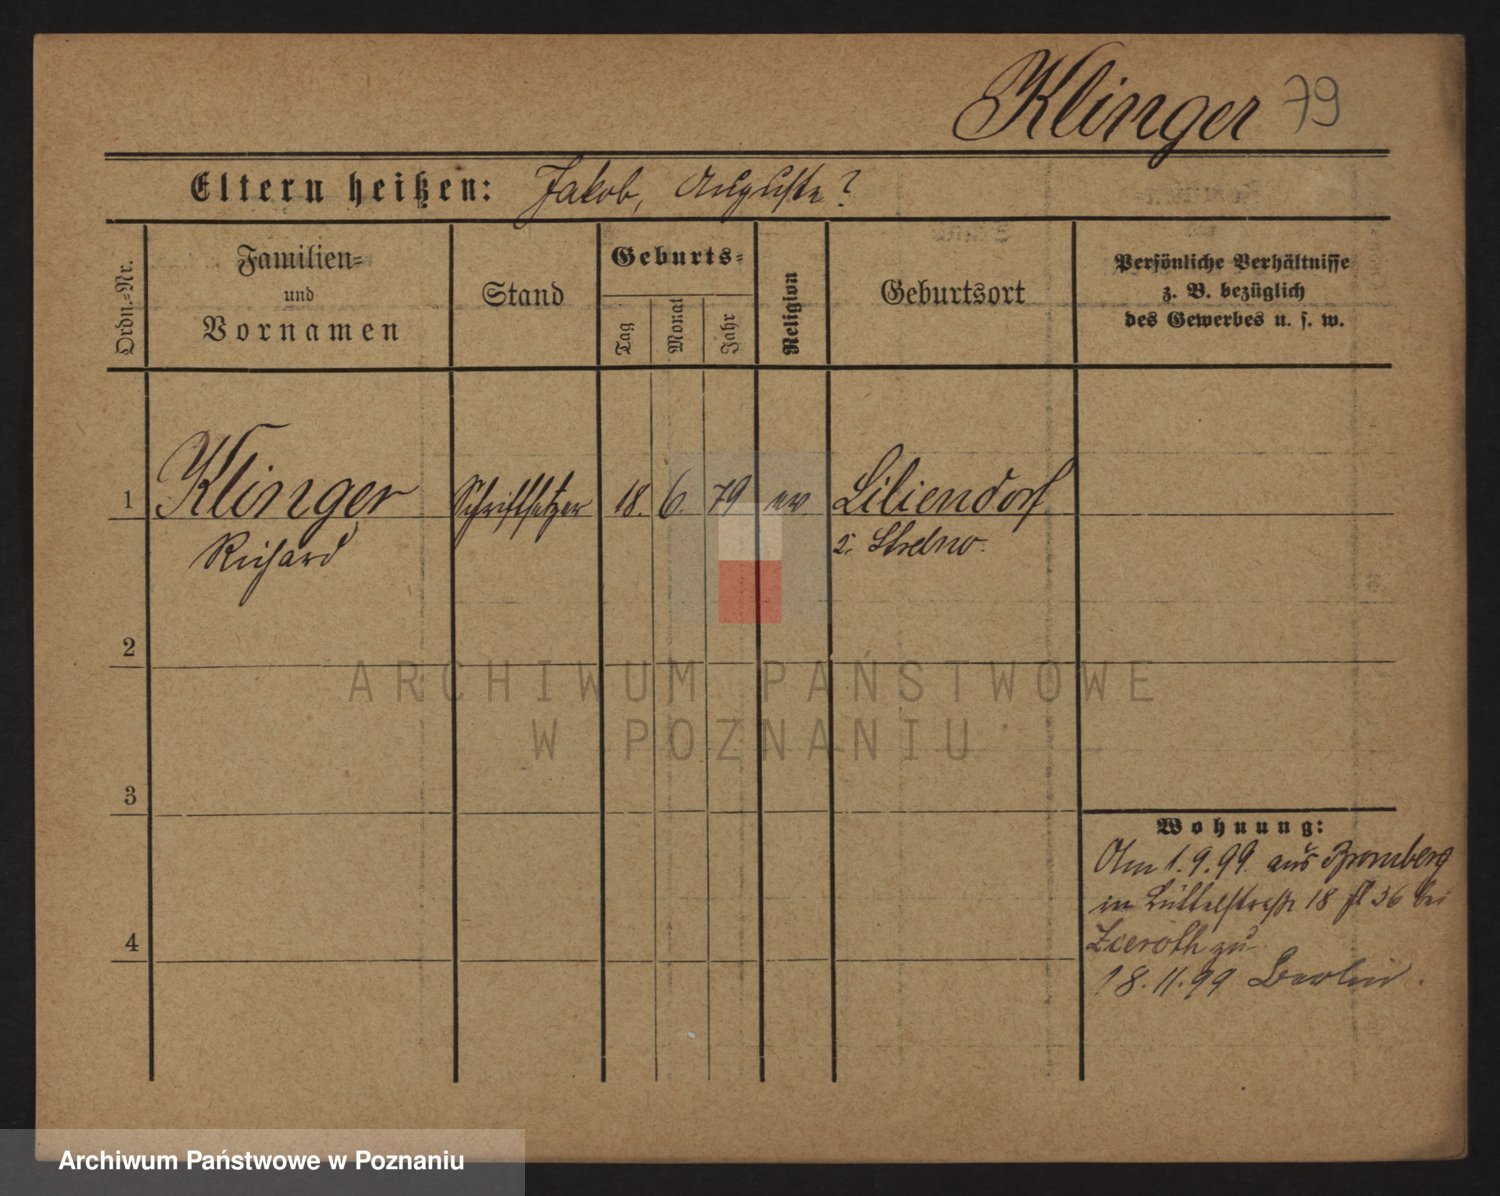 Klinger 79
Eltern heißen: Jakob, Auguste?
Ordn.=Nr.
Familien=
und
Vornamen
Stand
Geburts=
Tag
Monat
Jahr
Religion
Geburtsort
Persönliche Verhältnisse
z. B. bezüglich
des Gewerbes u. s. w.
1 Klinger Schriftsetzer 18. 6. 79 ev. Liliendorf
Richard
Kr. Strelno.
2
3
4
Wohnung:
Am 1.9.99. aus Bromberg
in 18 36 bei
zu
18.11.99 Berlin.
ARCHIWUM PAŃSTWOWE
W POZNANIU
Archiwum Państwowe w Poznaniu